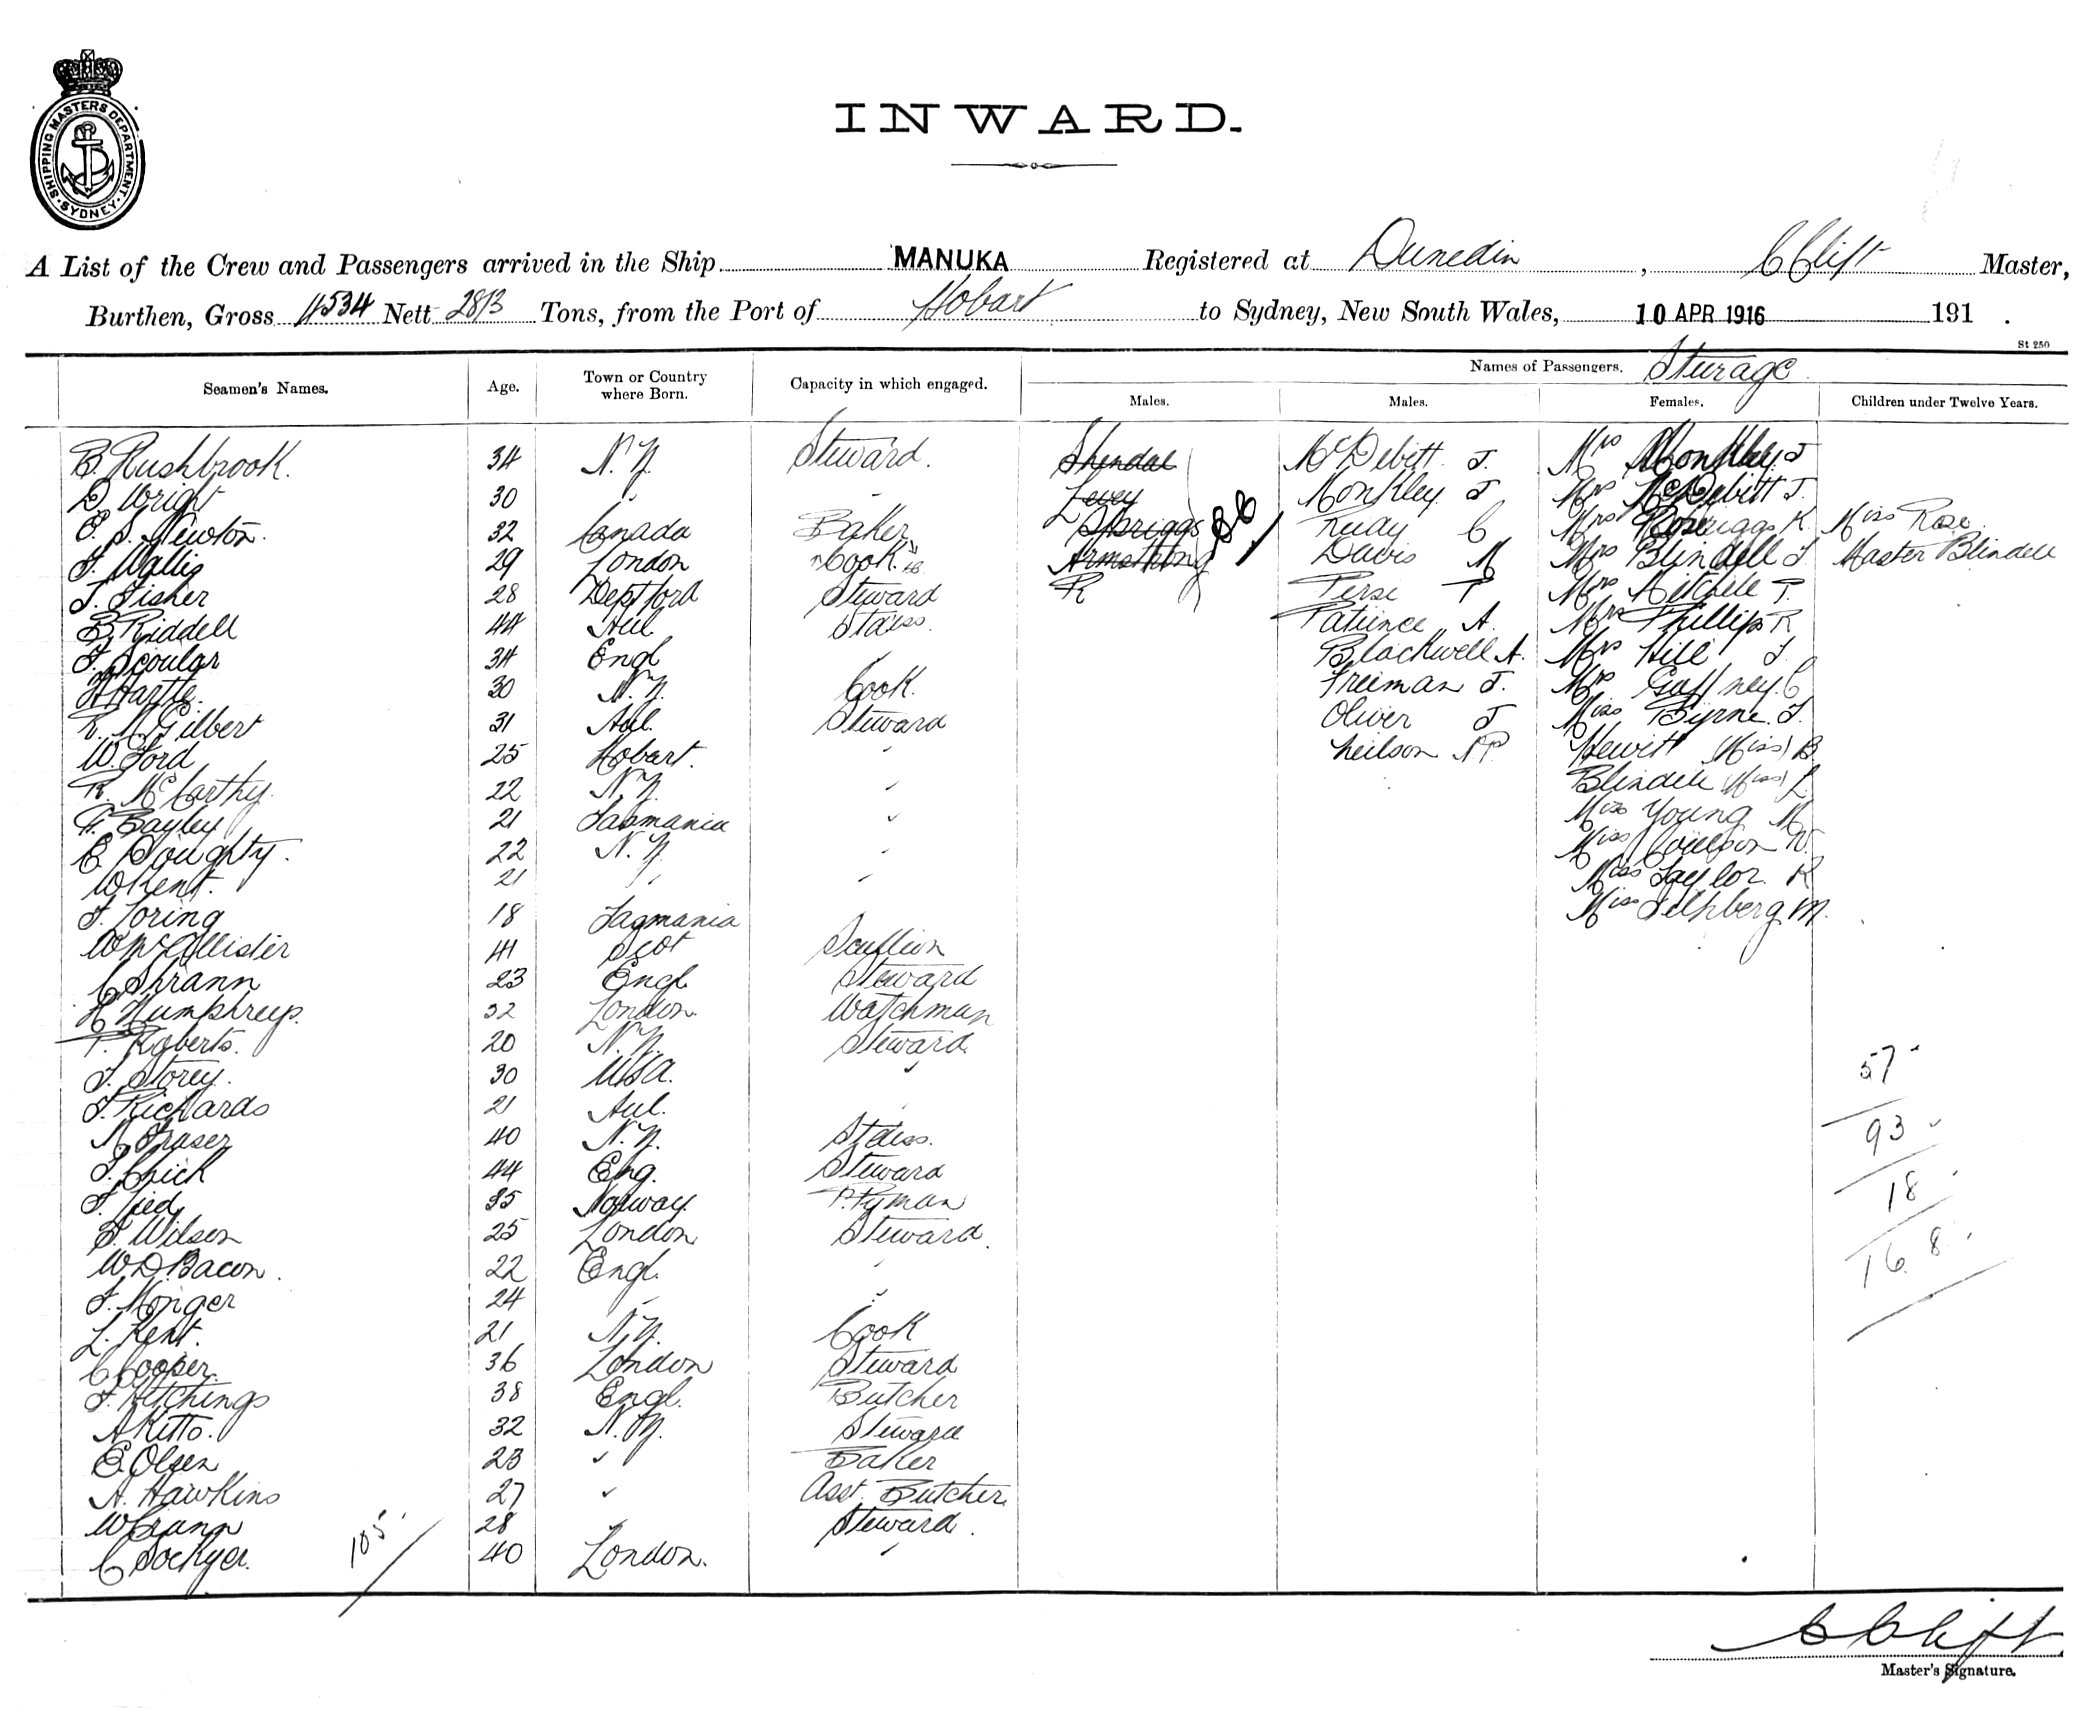 SHIPPING MASTERS DEPARTMENT. SYDNEY.
INWARD.
A List of the Crew and Passengers arrived in the Ship MANUKA Registered at Dunedin, C Clift Master,
Burthen, Gross 4534 Nett 2813 Tons, from the Port of Hobart to Sydney, New South Wales, 10 APR 1916 191 .
St 250
Names of Passengers.
Seamen's Names. Age. Town or Country where Born. Capacity in which engaged. Males. Males. Females. Children under Twelve Years.
B. Rushbrook. 34 N.Z. Steward. Shendal McDevitt J. Mrs Monkley J
D Wright 30 " " Levey Monkley J Mrs McDevitt J.
E. S. Newton. 32 Canada Baker Spriggs 86 C Mrs K. Miss Rose
J. Wallis 29 London Cook Armstrong Davis M Mrs Blindell J Master Blindell
J. Fisher 28 Deptford Steward R P Mrs Mitchell P.
B Riddell 44 Aul Stdess. Patience A. Mrs Phillips R
J. Scoular 34 Engl " Blackwell A. Mrs Hill J
H Hartle. 30 N.Z. Cook. Freeman J. Mrs Gaffney C
R. M Gilbert 31 Aul. Steward Oliver J Miss Byrne J.
W. Ford 25 Hobart. " Neilson NP Hewitt (Miss) B.
R. McCarthy. 22 N.Z. " Blindell (Miss) L
F. Bayley 21 Tasmania " Miss Young M
E. Doughty. 22 N.Z. " Miss Coulson W.
W Kent. 21 " " Miss Taylor. R
J. Loring 18 Tasmania Miss M.
W McAllister 41 Scot Scullion
C Shrann 23 Engl Steward
H Humphreys. 32 London. Watchman
P. Roberts. 20 N.Z. Steward.
J. Storey. 30 USA. "
J. Richards 21 Aul. "
N. Fraser 40 N.Z. Stdess.
J. Chick 44 Eng. Steward
J. 35 Norway. P.tyman
J. Wilson 25 London Steward.
W D Bacon. 22 Engl. "
J. Monger 24 " "
L. Kent. 21 N.Z. Cook
C Cooper. 36 London Steward
J. Hitchings 38 Engl. Butcher
A Kitto. 32 N.Z. Steward
E. Olsen 23 " Baker
A. Hawkins 27 " Asst. Butcher
W Crann 28 " Steward.
C Sockyer. 40 London. "
105
57
93
18
168
C Clift
Master's Signature.